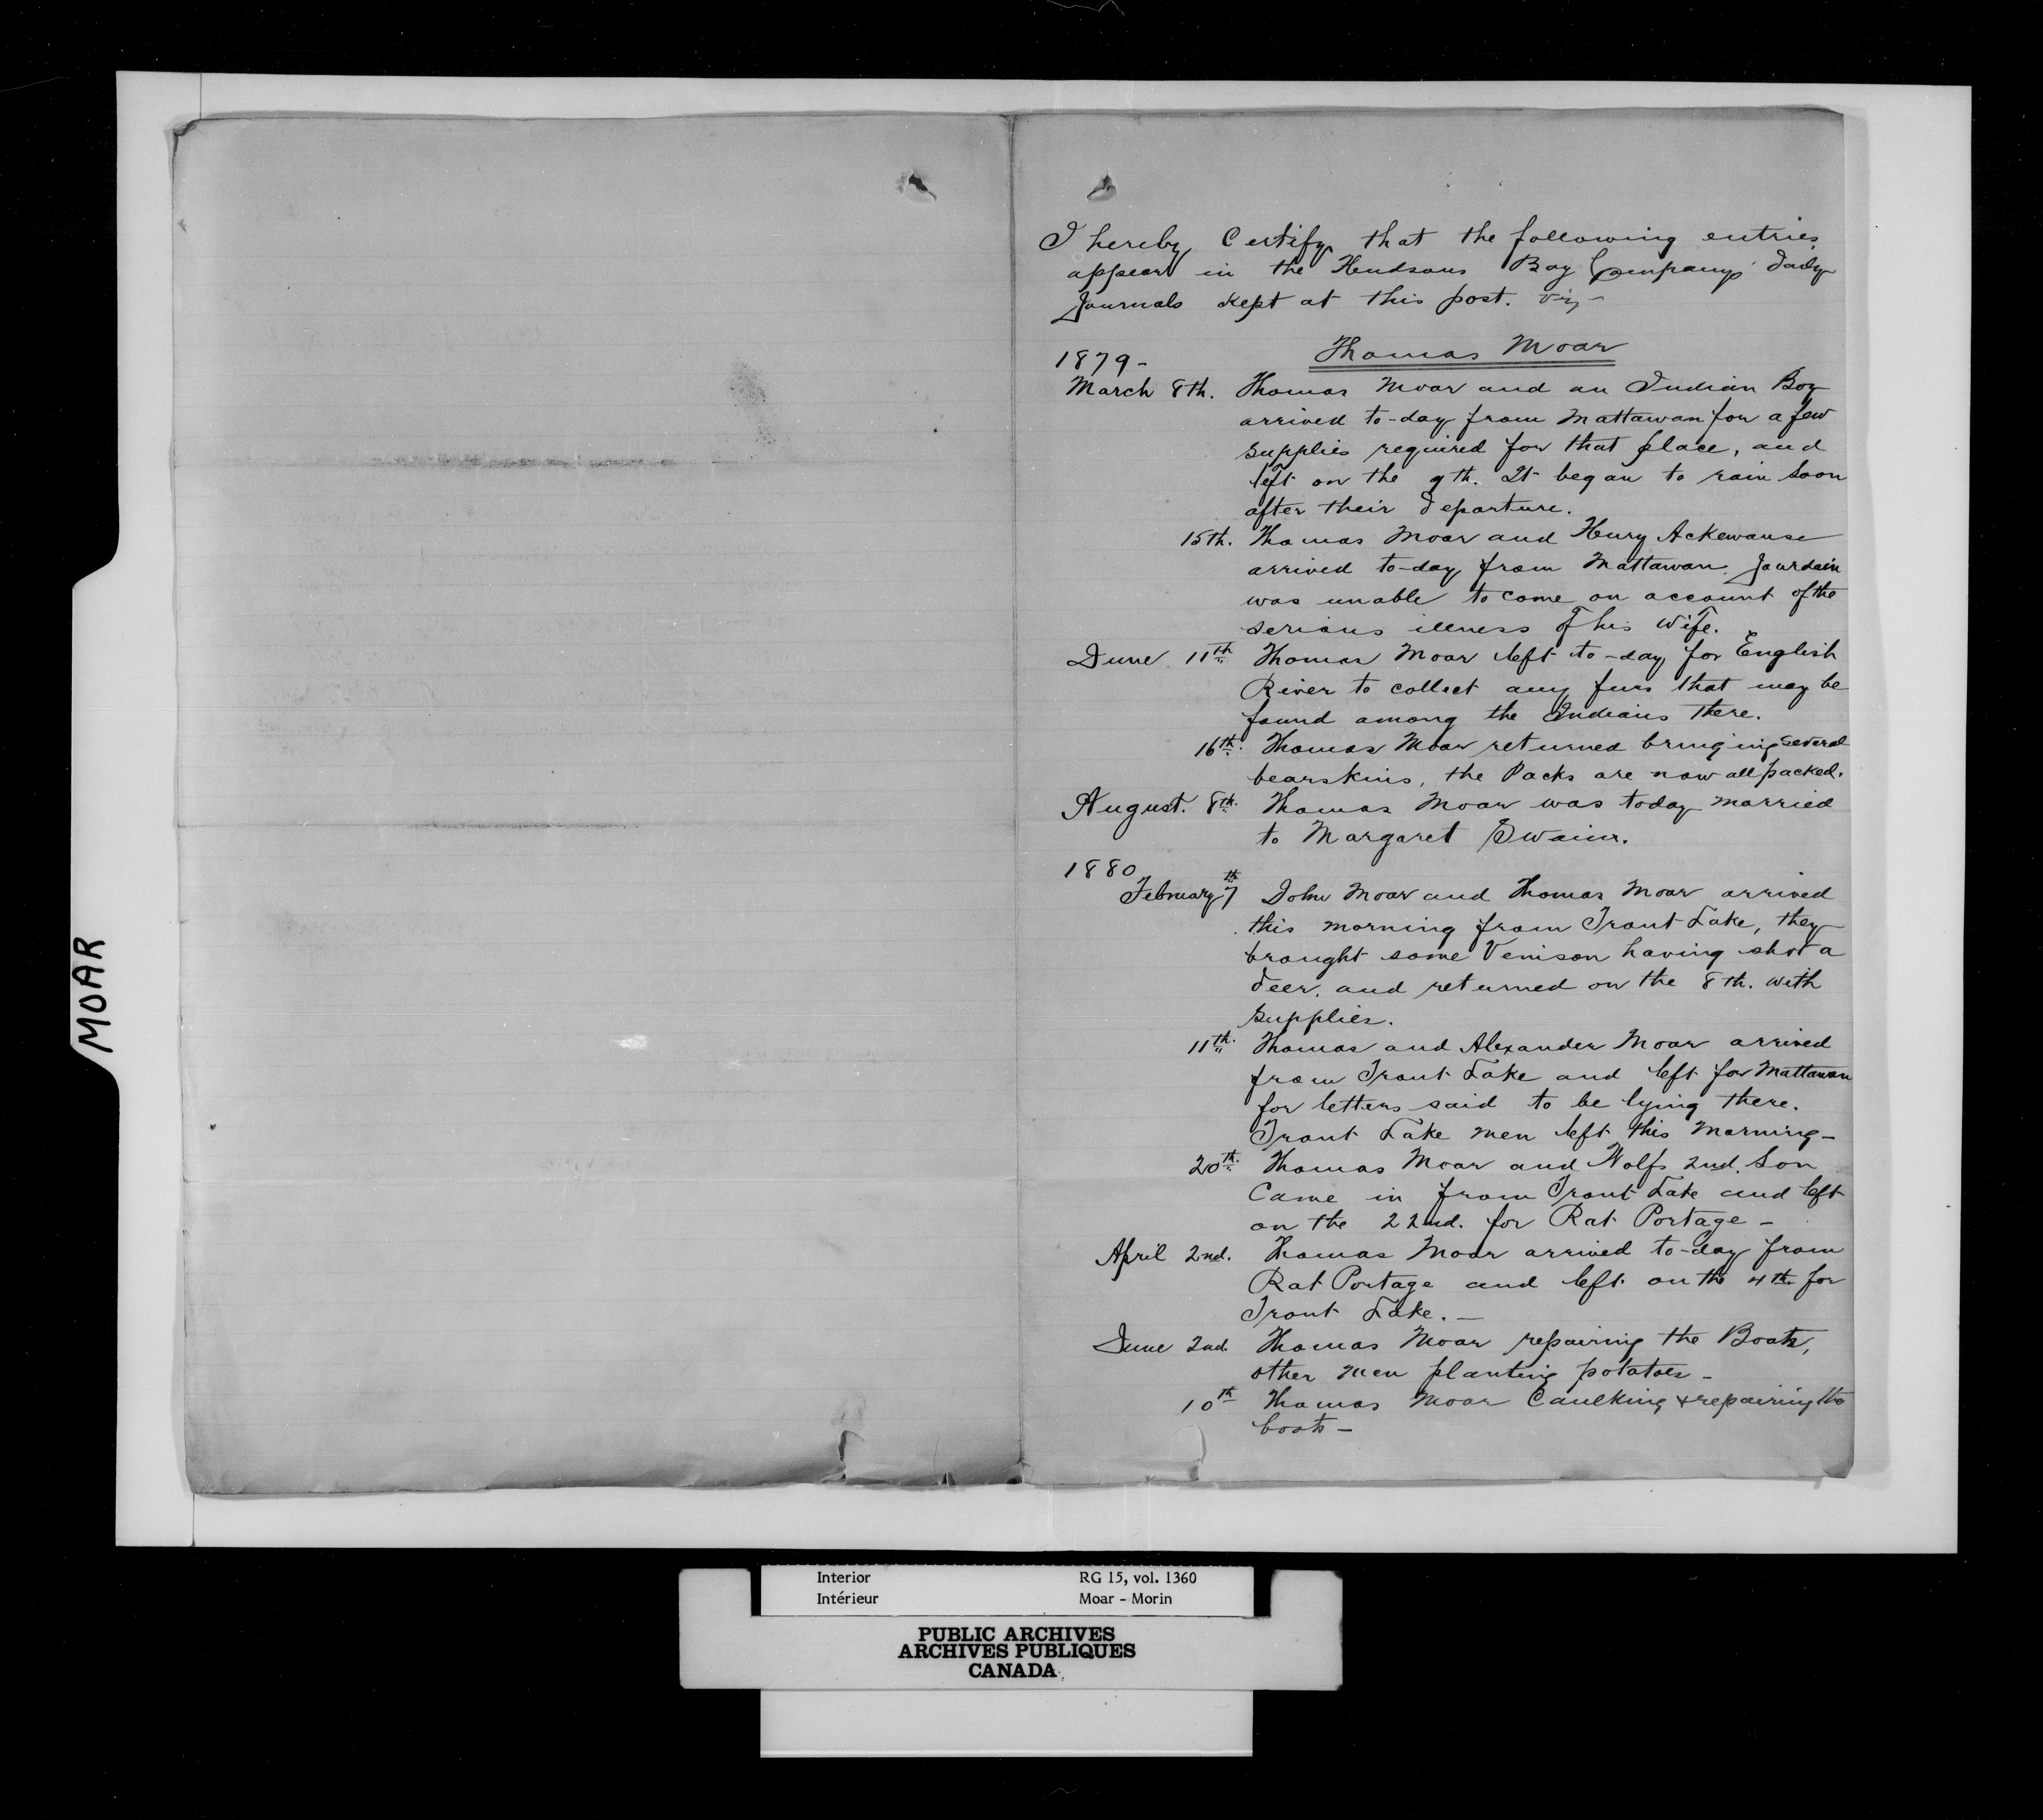 I hereby Certify that the following entries
appear in the Hudsons Bay Companys' daily
Journals kept at this post. viz -
Thomas Moar
1879 -
March 8th. Thomas Moar and an Indian Boy
arrived to-day from Mattawan for a few
supplies required for that place, and
left on the 9th. It began to rain soon
after their departure.
15th. Thomas Moar and Henry Ackewanse
arrived to-day from Mattawan. Jourdain
was unable to come on account of the
serious illness of his wife.
June 11th Thomas Moar left to-day for English
River to collect any furs that may be
found among the Indians there.
16th. Thomas Moar returned bringing several
bearskins, the Packs are now all packed.
August. 8th. Thomas Moar was today married
to Margaret Swain.
1880
February 7th John Moar and Thomas Moar arrived
this morning from Trout Lake, they
brought some Venison having shot a
deer. and returned on the 8th. with
supplies.
11th. Thomas and Alexander Moar arrived
from Trout Lake and left for Mattawan
for letters said to be lying there.
Trout Lake men left this morning -
20th. Thomas Moar and Wolfs 2nd. Son
Came in from Trout Lake and left
on the 22nd. for Rat Portage -
April 2nd. Thomas Moar arrived to-day from
Rat Portage and left on the 4th for
Trout Lake. -
June 2nd. Thomas Moar repairing the Boats,
other men planting potatoes -
10th Thomas Moar Caulking & repairing the
boats -
MOAR
Interior RG 15, vol. 1360
Intérieur Moar - Morin
PUBLIC ARCHIVES
ARCHIVES PUBLIQUES
CANADA